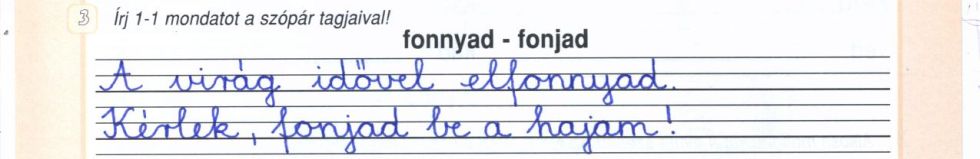 3 Írj 1-1 mondatot a szópár tagjaival!
fonnyad - fonjad
A virág idővel elfonnyad.
Kérlek, fonjad be a hajam!